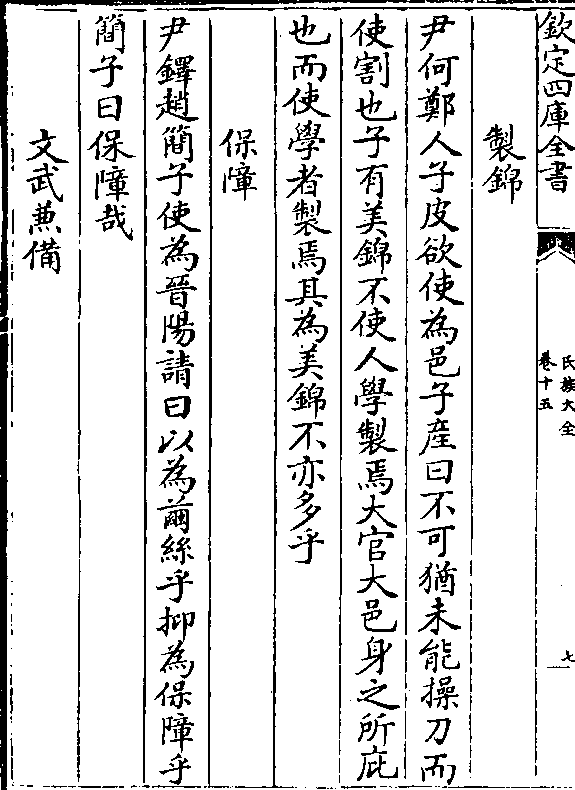 欽定四庫全書
氏族大全
卷十五
七
製錦
尹何鄭人子皮欲使為邑子産曰不可猶未能操刀而
使割也子有美錦不使人學製焉大官大邑身之所庇
也而使學者製焉其為美錦不亦多乎
保障
尹鐸趙簡子使為晉陽請曰以為繭絲乎抑為保障乎
簡子曰保障哉
文武兼備